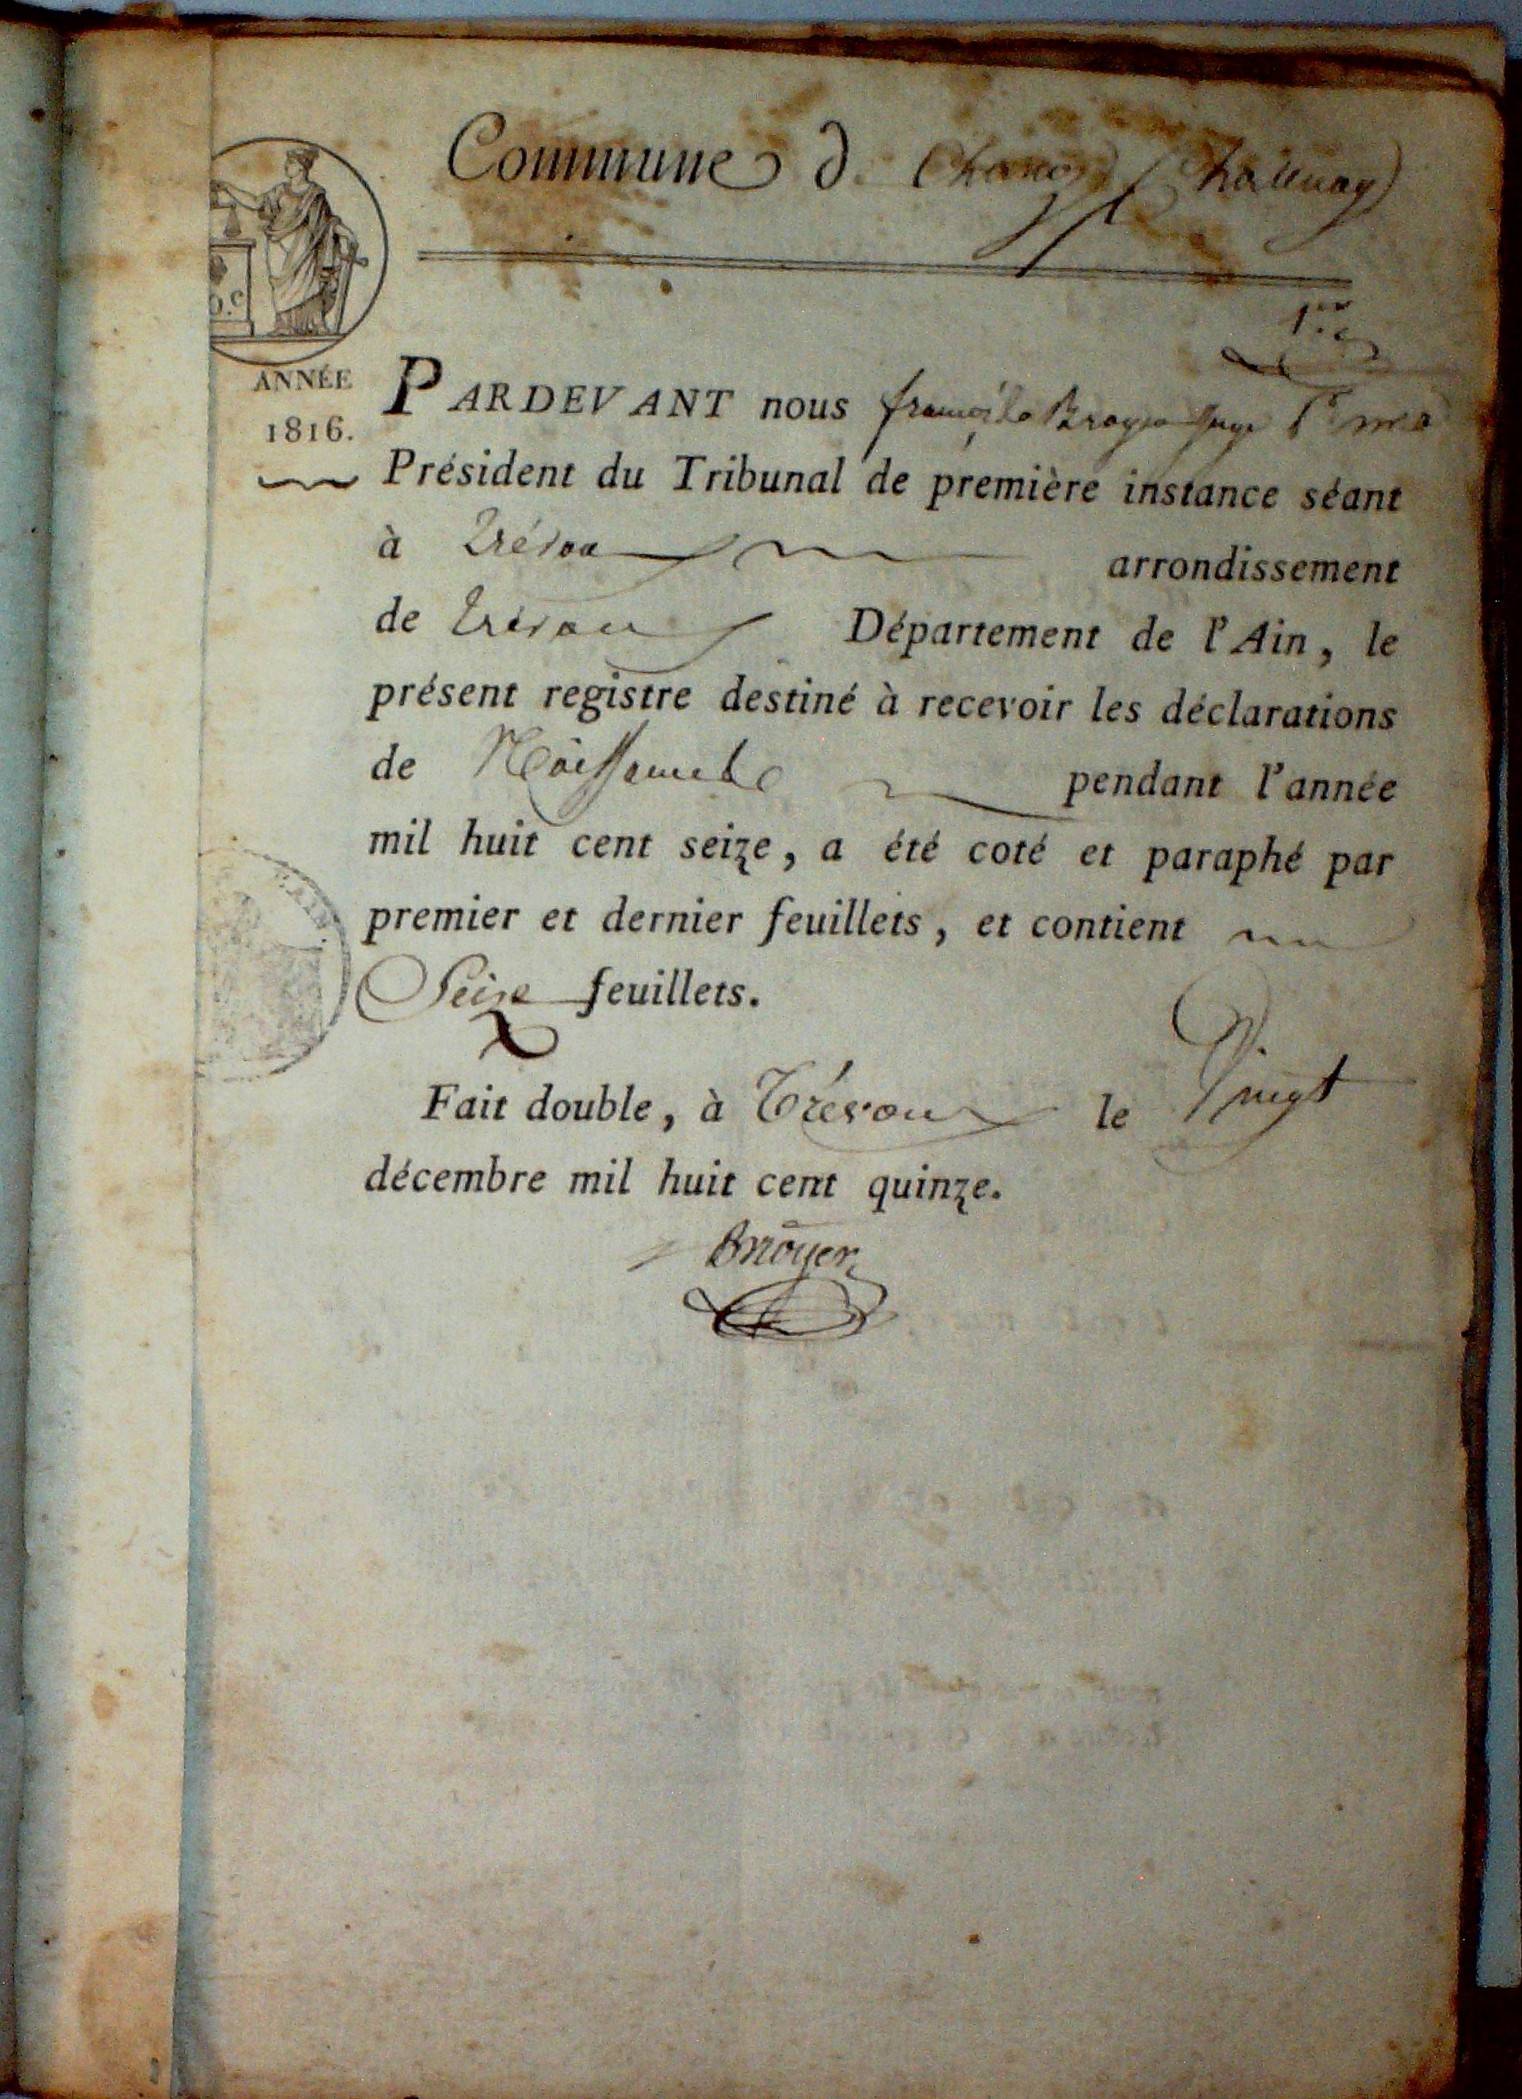 Commune d
1er
ANNÉE
1816.
PARDEVANT nous françois Broyer Juge
Président du Tribunal de première instance séant
à Trévoux arrondissement
de Trévoux Département de l'Ain, le
présent registre destiné à recevoir les déclarations
de Naissance pendant l'année
mil huit cent seize, a été coté et paraphé par
premier et dernier feuillets, et contient
Seize feuillets.
Fait double, à Trévoux le Vingt
décembre mil huit cent quinze.
Broyer